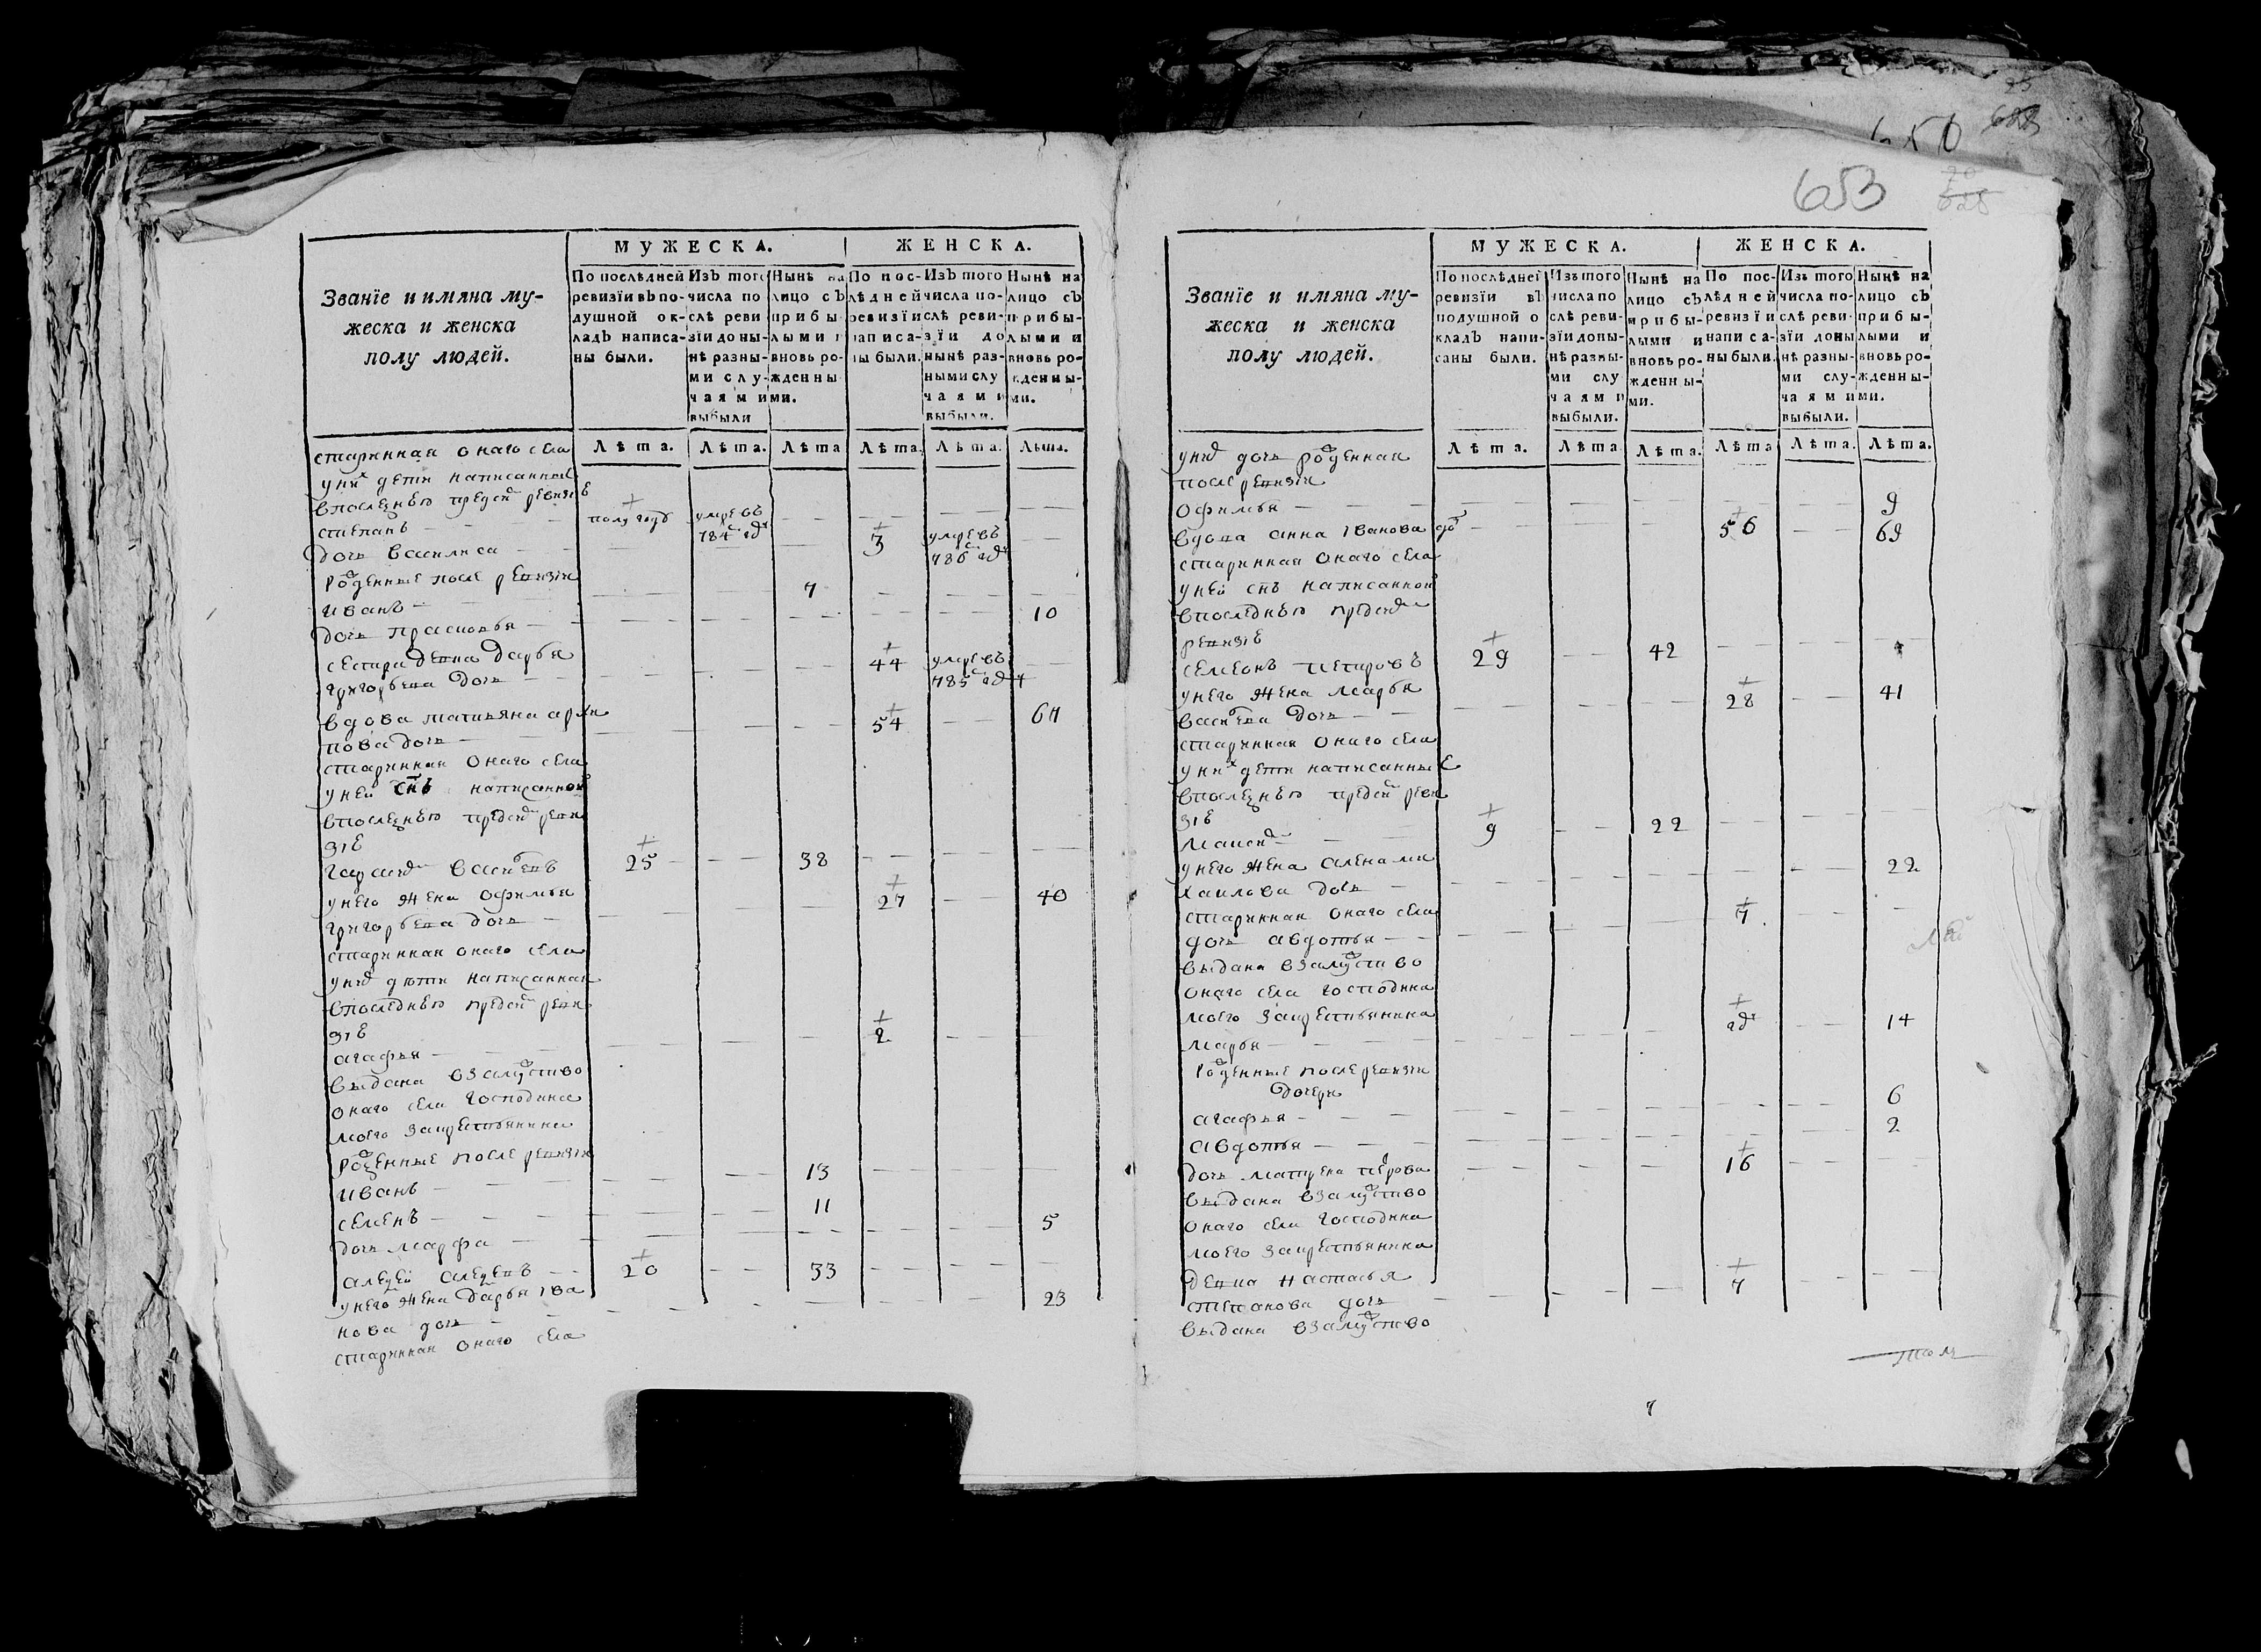 653
МУЖЕСКА. ЖЕНСКА.
Званїе и имяна му-
жеска и женска
полу людей.
По послѣдней ревизїи въ по-душной ок-ладъ написа-ны были.
Изъ того числа по слѣ реви зїи до ны-нѣ разны-ми слу-чаями выбыли
Нынѣ на лицо съ прибы-лыми и вновь ро-жденны ми.
По пос-лѣдней ревизїи написа-ны были.
Изъ того числа по-слѣ реви-зїи до нынѣ раз-ными слу чаями выбыли.
Нынѣ на лицо съ прибы-лыми и вновь ро-жденны-ми.
Лѣта. Лѣта. Лѣта Лѣта. Лѣта. Лѣта.
старинная онаго села
у них дети написанные
впоследнею пред сим ревизїе
степанъ полугодъ умре въ 784 год
дочь василиса 3 умре въ 786 год
рожденные после ревизїи
иванъ 7
дочь прасковья 10
сестра девка дарья
григорьева дочь 44 умре въ 785 год
вдова татьяна
пова дочь 54 67
старинная онаго села
у ней снъ написанной
впоследнею пред сим реви
зїе
василевъ 25 38
у него жена офимья
григорьева дочь 27 40
старинная онаго села
у них дети написанная
впоследнею пред сим реви
зїе
агафья 2
выдана взамужство
онаго села господина
моего за крестьянина
рожденные после ревизїи
иванъ 13
семенъ 11
дочь марфа 5
алексей 20 33
у него жена дарья ива
нова дочь 23
старинная онаго села
МУЖЕСКА. ЖЕНСКА.
Званїе и имяна му-
жеска и женска
полу людей.
По послѣдней ревизїи въ подушной о кладъ напи-саны были.
Изъ того числа по слѣ реви-зїи до ны-нѣ разны-ми слу чаями выбыли.
Нынѣ на лицо съ прибы-лыми и вновь ро-жденны-ми.
По пос-лѣдней ревизїи написа-ны были.
Изъ того числа по-слѣ реви-зїи до ны нѣ разны-ми слу-чаями выбыли.
Нынѣ на лицо съ прибы-лыми и вновь ро-жденны-ми.
Лѣта. Лѣта Лѣта. Лѣта Лѣта. Лѣта.
у них дочь рожденная
после ревизїи
офимья 9
вдова анна иванова до 56 69
старинная онаго села
у ней снъ написанной
впоследнею пред сим
ревизїе
семеонъ петровъ 29 42
у него жена марья
васильева дочь 28 41
старинная онаго села
у них дети написанные
впоследнею пред сим реви
зїе
9 22
у него жена алена ми
хаилова дочь 22
старинная онаго села
дочь авдотья 7
выдана взамужство
онаго села господина
моего за крестьянина
марья год 14
рожденные после ревизїи
дочери
агафья 6
авдотья 2
дочь матрена петрова 16
выдана взамужство
онаго села господина
моего за крестьянина
девка настасья
степанова дочь 7
выдана взамужство